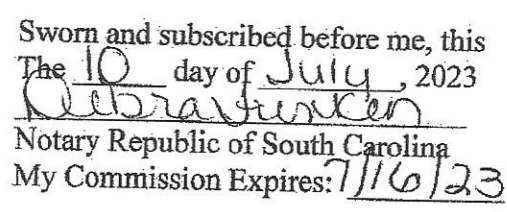 Sworn and subscribed before me, this
The 10 day of July, 2023
Debra Junken
Notary Republic of South Carolina
My Commission Expires: 7/16/23